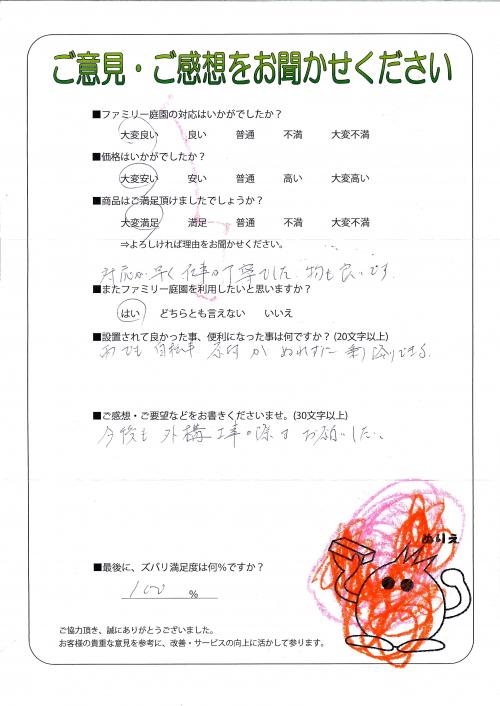 ご意見・ご感想をお聞かせください
■ファミリー庭園の対応はいかがでしたか？
大変良い 良い 普通 不満 大変不満
■価格はいかがでしたか？
大変安い 安い 普通 高い 大変高い
■商品はご満足頂けましたでしょうか？
大変満足 満足 普通 不満 大変不満
⇒よろしければ理由をお聞かせください。
対応が早く仕事が丁寧でした。物も良いです。
■またファミリー庭園を利用したいと思いますか？
はい どちらとも言えない いいえ
■設置されて良かった事、便利になった事は何ですか？(20文字以上)
雨でも 自転車 原付が ぬれずに 乗り降りできる。
■ご感想・ご要望などをお書きくださいませ。(30文字以上)
今後も 外構工事の際は お願いしたい。
ぬりえ
■最後に、ズバリ満足度は何％ですか？
100 %
ご協力頂き、誠にありがとうございました。
お客様の貴重な意見を参考に、改善・サービスの向上に活かして参ります。